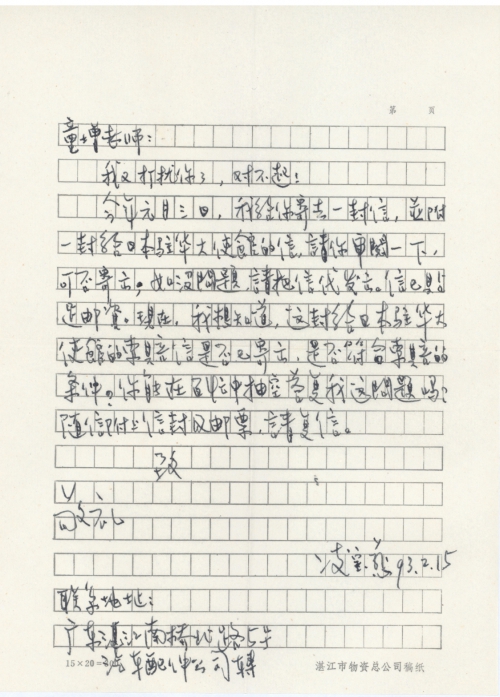 第 页
童增老师：
我又打扰你了，对不起！
今年元月三日，我给你寄去一封信，並附
一封给日本駐华大使館的信，請你审閱一下，
可否寄出。如没問題，請把信代发出。信已貼
足邮資。現在，我想知道，这封给日本駐华大
使館的索賠信是否已寄出，是否符合索賠的
条件？你能在百忙中抽空答复我这問題吗？
随信附上信封及邮票，請复信。
致
敬礼
93.2.15
联系地址：
广东湛江南桥北路5号
汽車配件公司轉
15×20=300
湛江市物资总公司稿纸